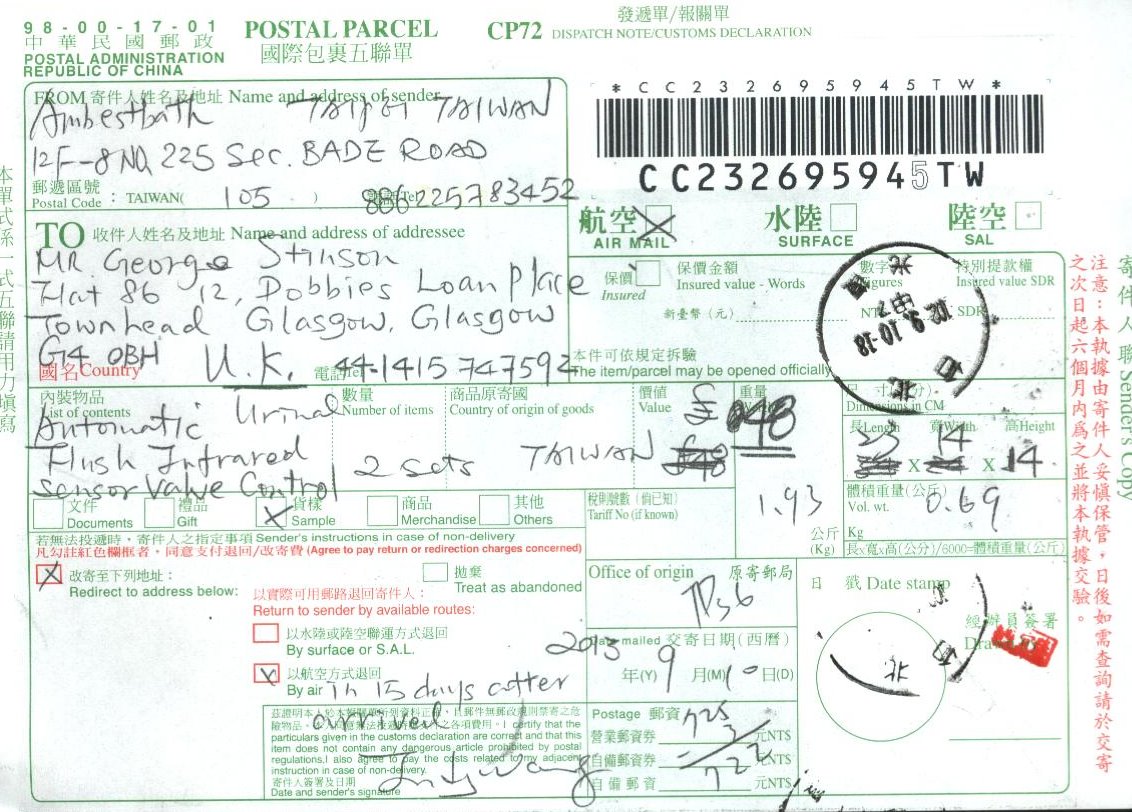 98-00-17-01
中華民國郵政
POSTAL ADMINISTRATION
REPUBLIC OF CHINA
POSTAL PARCEL
國際包裹五聯單
CP72
發遞單/報關單
DISPATCH NOTE/CUSTOMS DECLARATION
FROM 寄件人姓名及地址 Name and address of sender
Ambestbath TAIPEI TAIWAN
12F-8 NO, 225 Sec. BADE ROAD
郵遞區號
Postal Code : TAIWAN( 105 ) 電話Tel 886225783452
*CC232695945TW*
CC232695945TW
航空 AIR MAIL
水陸 SURFACE
陸空 SAL
TO 收件人姓名及地址 Name and address of addressee
MR. George Stinson
Flat 86 12, Dobbies Loan Place
Townhead Glasgow, Glasgow
G4 0BH U.K. 44-1415747592
國名Country 電話Tel
保價 Insured
保價金額
Insured value - Words
數字 Figures
特別提款權
Insured value SDR
新臺幣(元)
NT$
SDR
本件可依規定拆驗
The item/parcel may be opened officially
02.9.10-18
內裝物品
List of contents
數量
Number of items
商品原寄國
Country of origin of goods
價值
Value
重量
尺寸(公分)
Dimensions in CM
Automatic Urinal
Flush Infrared
sensor Valve Control
2 sets
TAIWAN
£48
長Length 寬Width 高Height
23 14
X X 14
1.93
公斤
(Kg)
體積重量(公斤)
Vol. wt. 0.69
Kg
長x寬x高(公分)/6000=體積重量(公斤)
文件 Documents
禮品 Gift
貨樣 Sample
商品 Merchandise
其他 Others
稅則號數(倘已知)
Tariff No (if known)
若無法投遞時,寄件人之指定事項 Sender's instructions in case of non-delivery
凡勾註紅色欄框者,同意支付退回/改寄費 (Agree to pay return or redirection charges concerned)
改寄至下列地址:
Redirect to address below:
拋棄
Treat as abandoned
以實際可用郵路退回寄件人:
Return to sender by available routes:
以水陸或陸空聯運方式退回
By surface or S.A.L.
以航空方式退回
By air In 15 days after
arrived
Office of origin 原寄郵局
TP36
Date mailed 交寄日期(西曆)
2013 年(Y) 9 月(M) 10 日(D)
日戳 Date stamp
經辦員簽署
Postage 郵資 725
營業郵資券 3 元NT$
自備郵資券 722 元NT$
自備郵資 元NT$
I certify that the
particulars given in the customs declaration are correct and that this
item does not contain any dangerous article prohibited by postal
regulations,I also agree to pay the costs related to my adjacent
instruction in case of non-delivery.
寄件人簽署及日期
Date and sender's signature
本單式係一式五聯請用力填寫
注意:本執據由寄件人妥慎保管,日後如需查詢請於交寄
之次日起六個月內為之並將本執據交驗。
寄件人聯 Sender's Copy